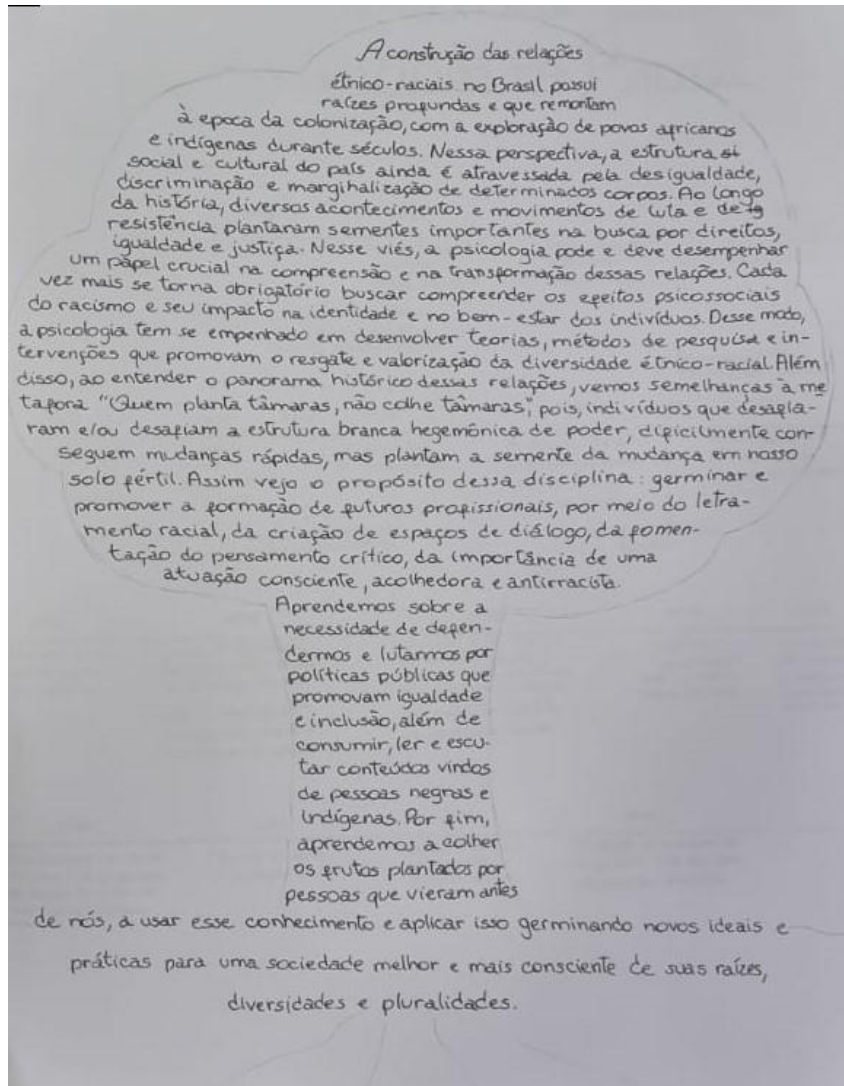 A construção das relações
étnico-raciais no Brasil possui
raízes profundas e que remontam
à epoca da colonização, com a exploração de povos africanos
e indígenas durante séculos. Nessa perspectiva, a estrutura
social e cultural do país ainda é atravessada pela desigualdade,
discriminação e marginalização de determinados corpos. Ao longo
da história, diversos acontecimentos e movimentos de luta e de
resistência plantaram sementes importantes na busca por direitos,
igualdade e justiça. Nesse viés, a psicologia pode e deve desempenhar
um papel crucial na compreensão e na transformação dessas relações. Cada
vez mais se torna obrigatório buscar compreender os efeitos psicossociais
do racismo e seu impacto na identidade e no bem-estar dos indivíduos. Desse modo,
a psicologia tem se empenhado em desenvolver teorias, métodos de pesquisa e in-
tervenções que promovam o resgate e valorização da diversidade étnico-racial. Além
disso, ao entender o panorama histórico dessas relações, vemos semelhanças a me
tafora "Quem planta tâmaras, não colhe tâmaras", pois, indivíduos que desafia-
ram e/ou desafiam a estrutura branca hegemônica de poder, dificilmente con-
seguem mudanças rápidas, mas plantam a semente da mudança em nosso
solo fértil. Assim vejo o propósito dessa disciplina: germinar e
promover a formação de futuros profissionais, por meio do letra-
mento racial, da criação de espaços de diálogo, da fomen-
tação do pensamento crítico, da importância de uma
atuação consciente, acolhedora e antirracista.
Aprendemos sobre a
necessidade de defen-
dermos e lutarmos por
políticas públicas que
promovam igualdade
e inclusão, além de
consumir, ler e escu-
tar conteúdos vindos
de pessoas negras e
indígenas. Por fim,
aprendemos a colher
os frutos plantados por
pessoas que vieram antes
de nós, a usar esse conhecimento e aplicar isso germinando novos ideais e
práticas para uma sociedade melhor e mais consciente de suas raízes,
diversidades e pluralidades.